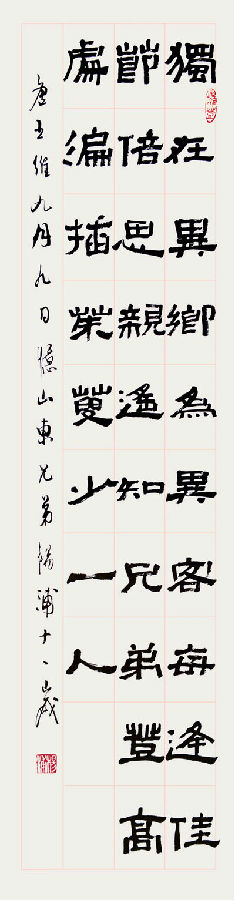 獨在異鄉為異客每逢佳
節倍思親遙知兄弟登高
處徧插茱萸少一人
唐王維九月九日憶山東兄弟浦十一歲